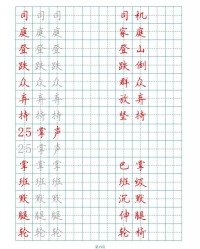 司 司 司 司 机
庭 庭 庭 家 庭
登 登 登 登 山
跌 跌 跌 跌 倒
众 众 众 群 众
弃 弃 弃 放 弃
持 持 持 坚 持
25 掌 声
25 掌 声
掌 掌 掌 巴 掌
班 班 班 班 级
默 默 默 沉 默
腿 腿 腿 伸 腿
轮 轮 轮 轮